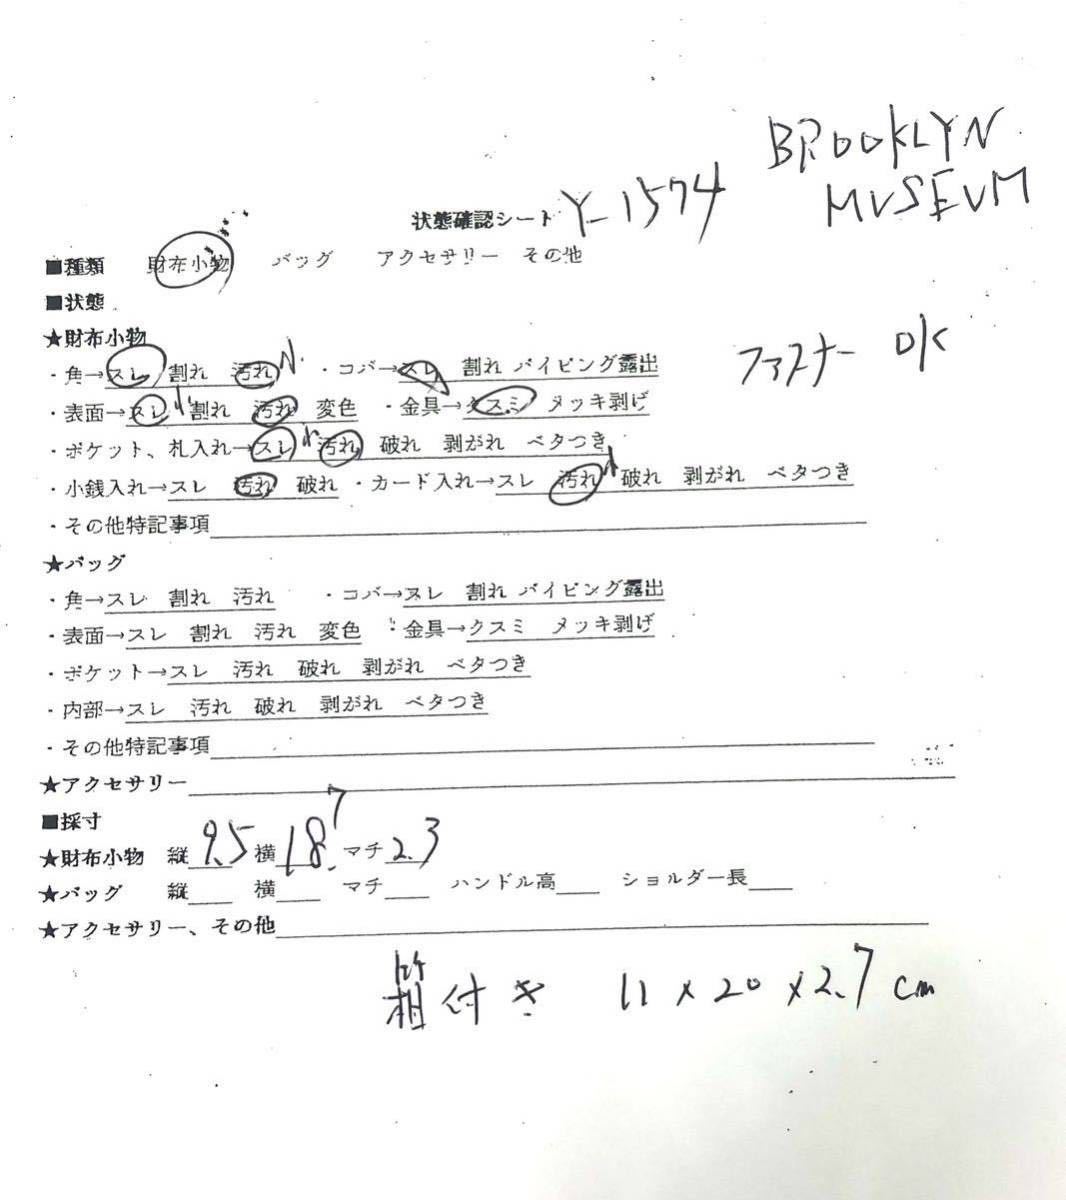 BROOKLYN
MUSEUM
状態確認シート Y-1574
■種類 財布小物 バッグ アクセサリー その他
■状態
★財布小物
ファスナー OK
・角→スレ 割れ 汚れ 小 ・コバ→スレ 割れ パイピング露出
・表面→スレ 小 割れ 汚れ 変色 ・金具→クスミ メッキ剥げ
・ポケット、札入れ→スレ 小 汚れ 破れ 剥がれ ベタつき
・小銭入れ→スレ 汚れ 破れ ・カード入れ→スレ 汚れ 小 破れ 剥がれ ベタつき
・その他特記事項
★バッグ
・角→スレ 割れ 汚れ ・コバ→スレ 割れ パイピング露出
・表面→スレ 割れ 汚れ 変色 ・金具→クスミ メッキ剥げ
・ポケット→スレ 汚れ 破れ 剥がれ ベタつき
・内部→スレ 汚れ 破れ 剥がれ ベタつき
・その他特記事項
★アクセサリー
■採寸
★財布小物 縦 9.5 横 18.7 マチ 2.3
★バッグ 縦 横 マチ ハンドル高 ショルダー長
★アクセサリー、その他
箱付き 11×20×2.7cm